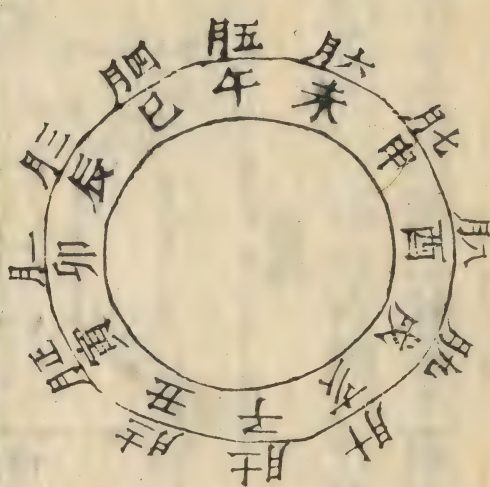 五月
午
六月
未
七月
申
八月
酉
九月
戌
十月
亥
十一月
子
十二月
丑
正月
寅
二月
卯
三月
辰
四月
巳